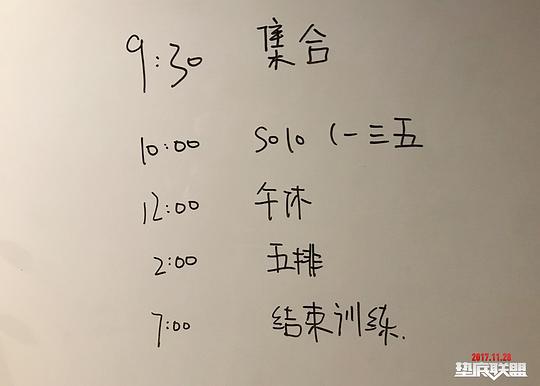 9:30 集合
10:00 Solo (一三五
12:00 午休
2:00 五排
7:00 结束训练.
2017.11.28
垫底联盟